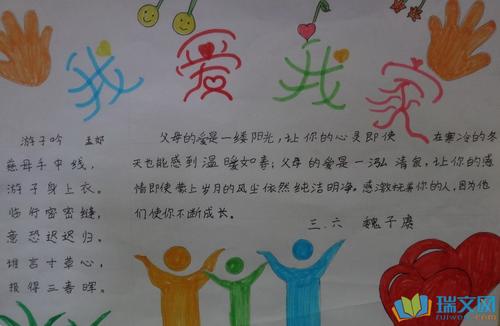 我爱我家
游子吟 孟郊
慈母手中线，
游子身上衣。
临行密密缝，
意恐迟迟归。
谁言寸草心，
报得三春晖。
父母的爱是一缕阳光，让你的心灵即使在寒冷的冬
天也能感到温暖如春；父母的爱是一泓清泉，让你的感
情即使蒙上岁月的风尘依然纯洁明净。感激抚养你的人，因为他
们使你不断成长。
三.六 魏子
瑞文网
ruiwen.com